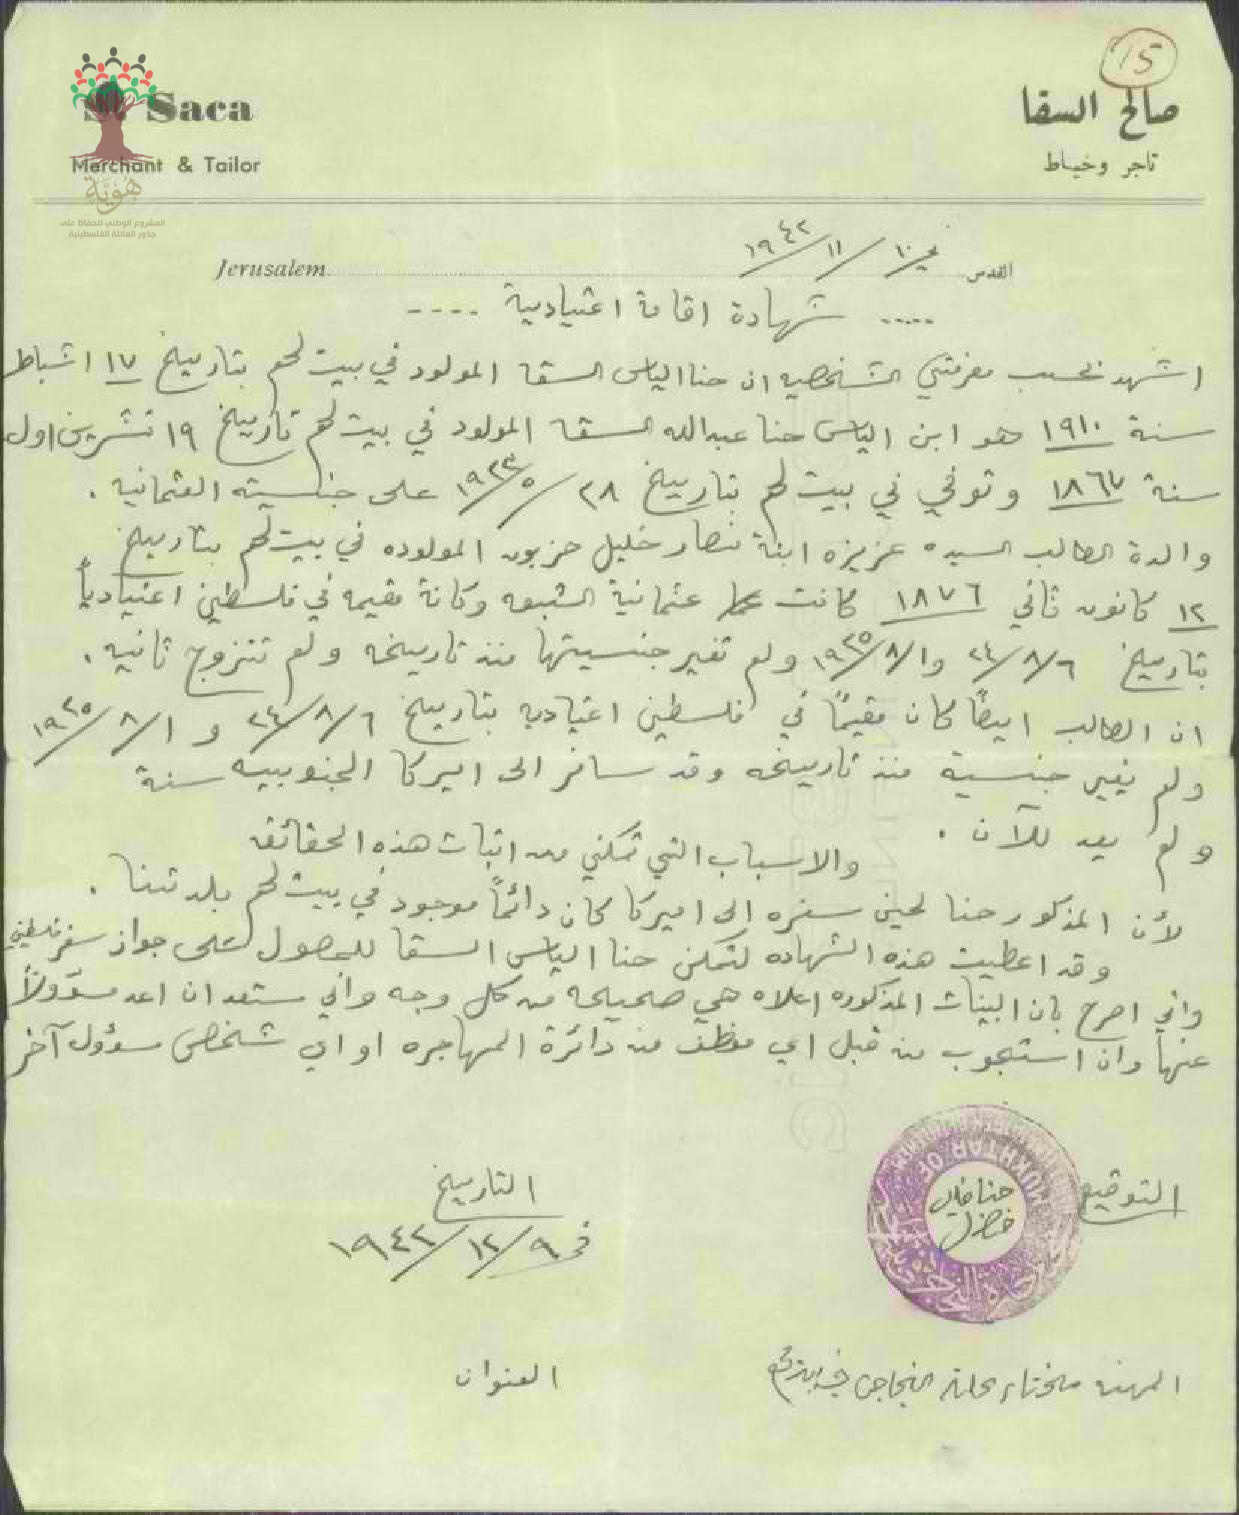 15
S. Saca
صالح السقا
Merchant & Tailor
تاجر وخياط
هُوِيَّة
المشروع الوطني للحفاظ على
جذور العائلة الفلسطينية
Jerusalem القدس في ١٠/١١/١٩٤٢
..... شهادة اقامة اعتيادية ....
اشهد بحسب معرفتي الشخصيه ان حنا الياس السقا المولود في بيت لحم بتاريخ ١٧ اشباط
سنة ١٩١٠ هو ابن الياس حنا عبدالله السقا المولود في بيت لحم تاريخ ١٩ تشرين اول
سنة ١٨٦٧ وتوفي في بيت لحم بتاريخ ٢٨/٥/١٩٢٣ على جنسيته العثمانيه .
والدة الطالب السيده عزيزه ابنة نصار خليل حزبون المولوده في بيت لحم بتاريخ
١٢ كانون ثاني ١٨٧٦ كانت عثمانية التبعه وكانة مقيمه في فلسطين اعتيادياً
بتاريخ ٦/٨/٢٤ و١/٨/١٩٢٥ ولم تغير جنسيتها منذ تاريخه ولم تتزوج ثانيه .
ان الطالب ايضاً كان مقيماً في فلسطين اعتياديه بتاريخ ٦/٨/٢٤ و ١/٨/١٩٢٥
ولم يغير جنسية منذ تاريخه وقد سافر الى اميركا الجنوبيه سنة
ولم يعد للآن .
والاسباب التي تمكني من اثبات هذه الحقائق
لأن المذكور حنا لحين سفره الى اميركا كان دائماً موجود في بيت لحم بلدتنا .
وقد اعطيت هذه الشهاده لتمكن حنا الياس السقا للحصول على جواز سفر فلسطيني
واني اصرح بان البينات المذكوره اعلاه هي صحيحه من كل وجه واني مستعد ان اعد مسؤولاً
عنها وان استجوب من قبل اي موظف من دائرة المهاجره او اي شخص مسؤول آخر
التوقيع
MUKHTAR OF
حنا خليل
التاريخ
في ٩/١٢/١٩٤٢
المهنه مختار محلة النجاجرة في بيت لحم
العنوان